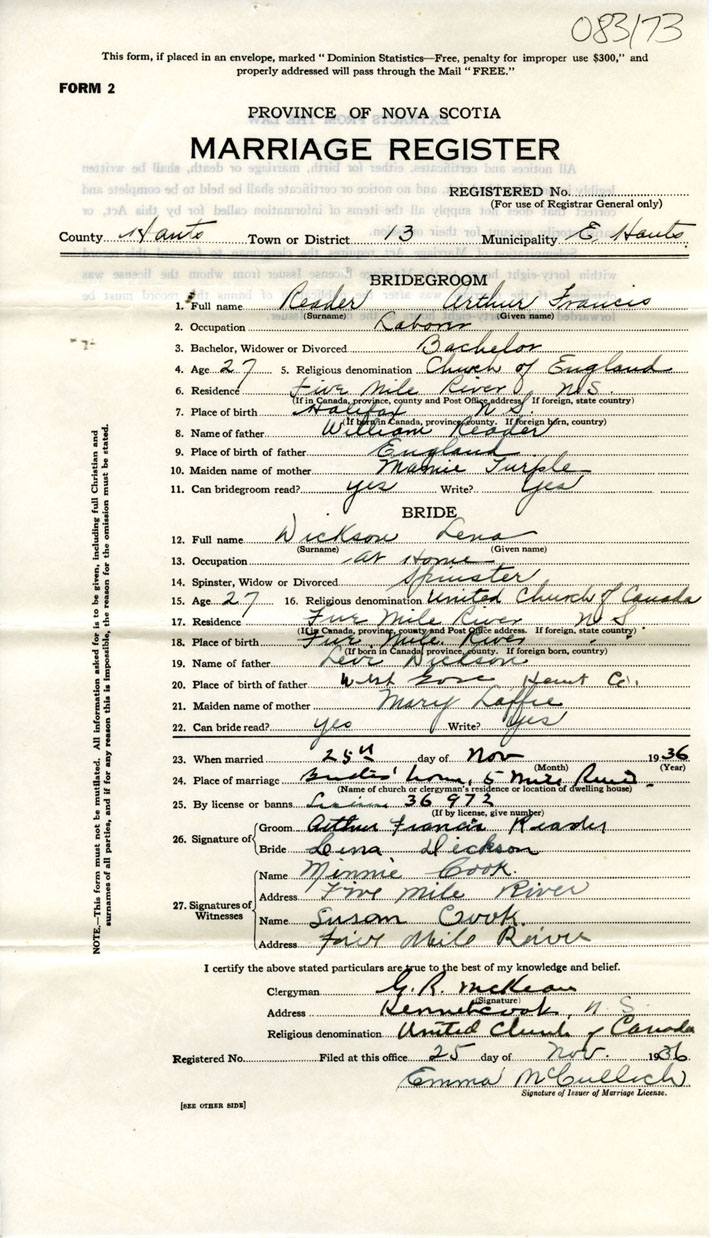 083173
This form, if placed in an envelope, marked "Dominion Statistics—Free, penalty for improper use $300," and
properly addressed will pass through the Mail "FREE."
FORM 2
PROVINCE OF NOVA SCOTIA
MARRIAGE REGISTER
REGISTERED No.
(For use of Registrar General only)
County Hants Town or District 13 Municipality E. Hants
BRIDEGROOM
1. Full name Reader Arthur Francis
(Surname) (Given name)
2. Occupation Laborer
3. Bachelor, Widower or Divorced Bachelor
4. Age 27 5. Religious denomination Church of England
6. Residence Five Mile River N.S.
(If in Canada, province, county and Post Office address. If foreign, state country)
7. Place of birth Halifax N.S.
(If born in Canada, province, county. If foreign born, country)
8. Name of father William Reader
9. Place of birth of father England
10. Maiden name of mother Mamie Turple
11. Can bridegroom read? yes Write? Yes
BRIDE
12. Full name Dickson Lena
(Surname) (Given name)
13. Occupation at Home
14. Spinster, Widow or Divorced Spinster
15. Age 27 16. Religious denomination United Church of Canada
17. Residence Five Mile River N S
(If in Canada, province, county and Post Office address. If foreign, state country)
18. Place of birth Five Mile River
(If born in Canada, province, county. If foreign born, country)
19. Name of father Levi Dickson
20. Place of birth of father West Gore Hant Co.
21. Maiden name of mother Mary Laffie
22. Can bride read? yes Write? Yes
23. When married 25th day of Nov 1936
(Month) (Year)
24. Place of marriage Brides' home, 5 Mile River
(Name of church or clergyman's residence or location of dwelling house)
25. By license or banns License 36 972
(If by license, give number)
26. Signature of
Groom Arthur Francis Reader
Bride Lena Dickson
27. Signatures of Witnesses
Name Minnie Cook.
Address Five Mile River
Name Susan Crook.
Address Five Mile River
I certify the above stated particulars are true to the best of my knowledge and belief.
Clergyman G. R. McKean
(Signature)
Address Kennetcook, N S.
Religious denomination United Church of Canada
Registered No. Filed at this office 25 day of Nov. 1936
Emma McCulloch
Signature of Issuer of Marriage License.
[SEE OTHER SIDE]
NOTE.—This form must not be mutilated. All information asked for is to be given, including full Christian and
surnames of all parties, and if for any reason this is impossible, the reason for the omission must be stated.